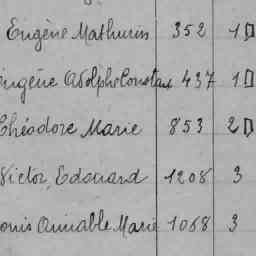 Eugène Mathurin 352 1D
Eugène Adolphe Constant 437 1D
Théodore Marie 853 2D
Victor Edouard 1208 3
Louis Aimable Marie 1068 3